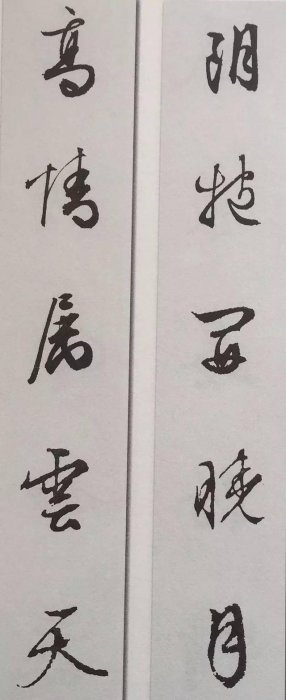 朗抱開曉月
高情属雲天